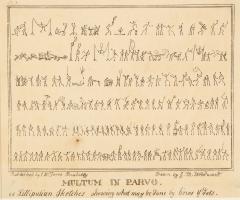 Published by
Drawn by J.
MULTUM IN PARVO.
or Lilliputian Sketches shewing what may be done by lines & dots.